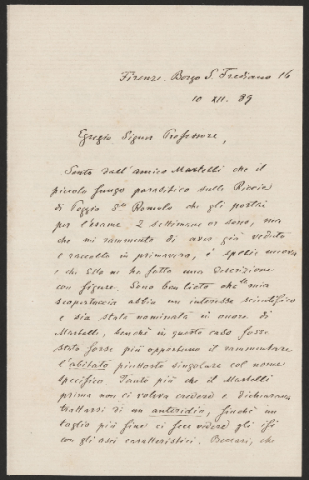 Firenze. Borgo S. Frediano 16
10 XII. 89
Egregio Signor Professore,
Sento dall'amico Martelli che il
piccolo fungo parassitico sulla Riccia
di Poggio S. Romolo che gli portai
per l'esame 2 settimane or sono, ma
che mi rammento di aver già veduto
e raccolto in primavera, è specie nuova
e che Ella ne ha fatto una descrizione
con figure. Sono ben lieto che la mia
scopertuccia abbia un interesse scientifico
e sia stata nominata in onore di
Martelli, benchè in questo caso fosse
stato forse più opportuno il rammentare
l'abitato piuttosto singolare col nome
specifico. Tanto più che il Martelli
prima non ci voleva credere e dichiarava
trattarsi di un anteridio, finchè un
taglio più fine ci fece vedere gli ifi
con gli asci caratteristici. Beccari, che